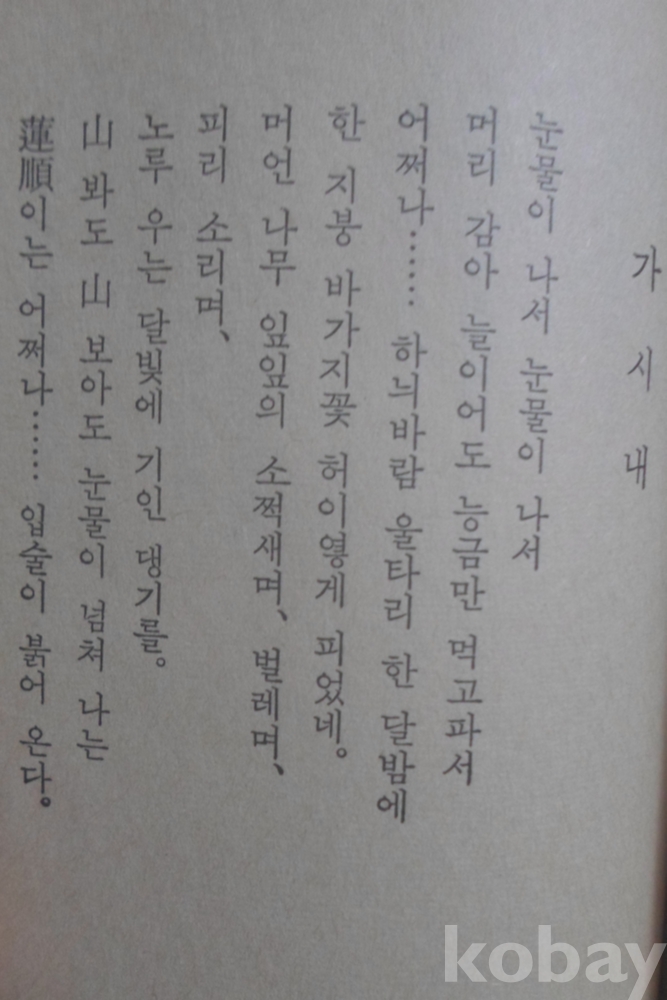 가시내
눈물이 나서 눈물이 나서
머리 감아 늘이어도 능금만 먹고파서
어쩌나…… 하늬바람 울타리 한 달밤에
한 지붕 바가지꽃 허이옇게 피었네。
머언 나무 잎잎의 소쩍새며、벌레며、
피리 소리며、
노루 우는 달빛에 기인 댕기를。
山 봐도 山 보아도 눈물이 넘쳐 나는
蓮順이는 어쩌나…… 입술이 붉어 온다。
kobay